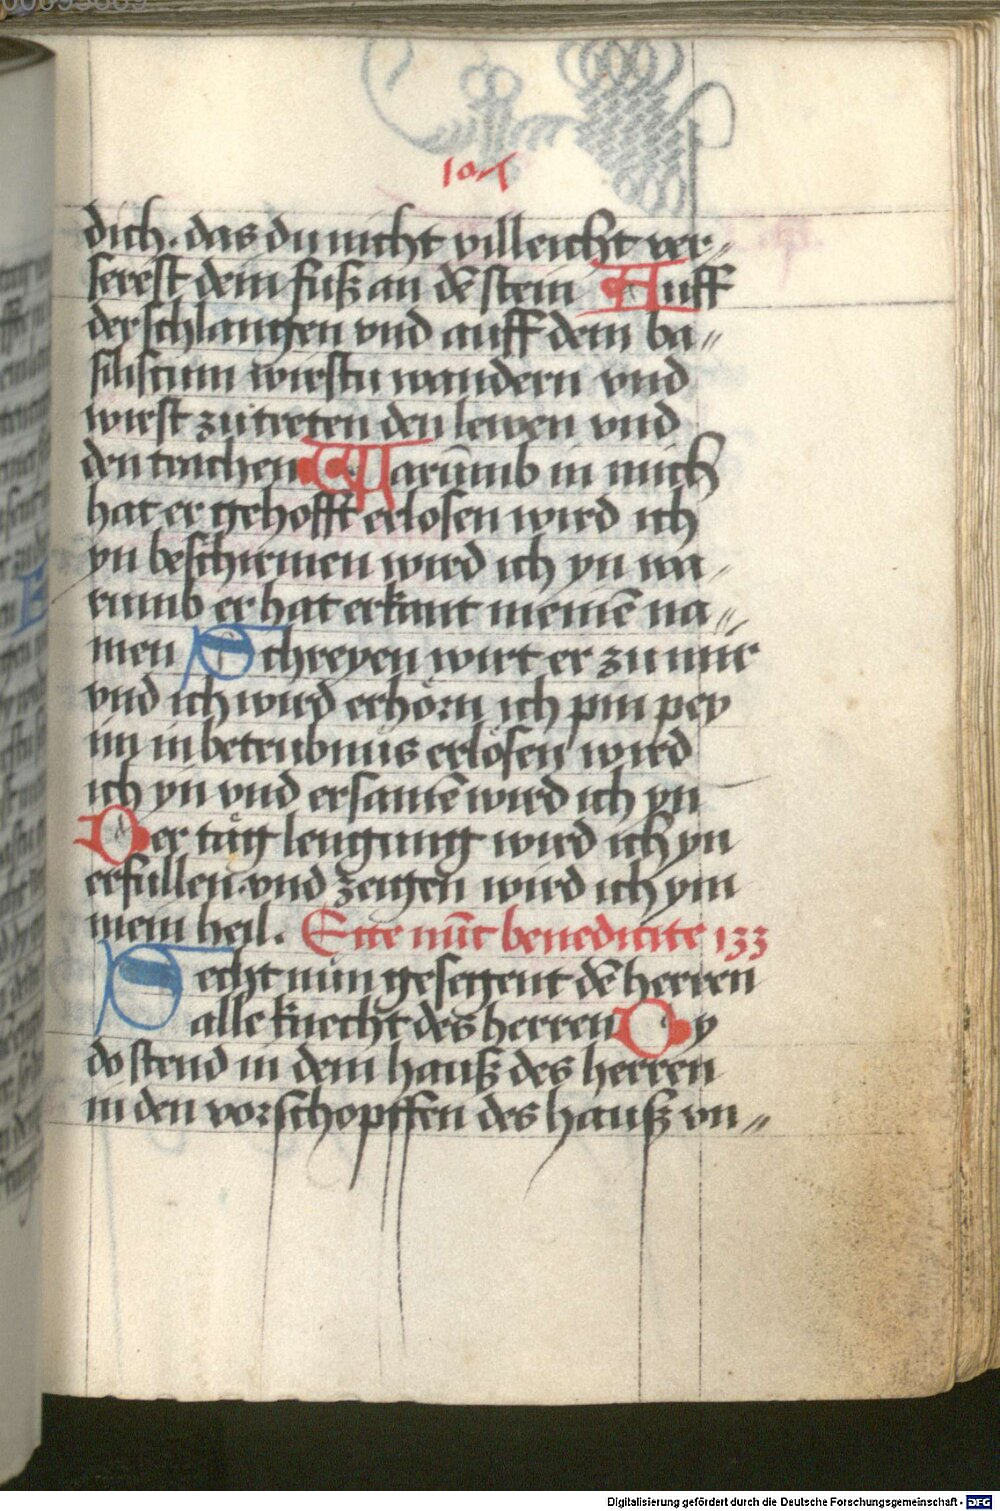 107
dich. das du nicht villeicht ver-
serest dein fuß an dē stein Auff
der schlangen vnd auff dem ba-
siliscum wirstu wandern vnd
wirst zutreten den lewen vnd
den trachen Warūmb in mich
hat er gehofft erlosen wird ich
yn beschirmen wird ich yn wa-
rumb er hat erkant meinē na-
men Schreyen wirt er zu mir
vnd ich wird erhörn ich pin pey
im in betrubnus erlösen wird
ich yn vnd ersamē wird ich yn
Der täg lengung wird ich yn
erfullen. vnd zeigen wird ich ym
mein heil. Ecce nūc benedicite 133
Secht nün gesegent dē herren
alle knecht des herren Dy
do stend in dem hauß des herren
in den vorschopffen des hauß vn-
Digitalisierung gefördert durch die Deutsche Forschungsgemeinschaft - DFG